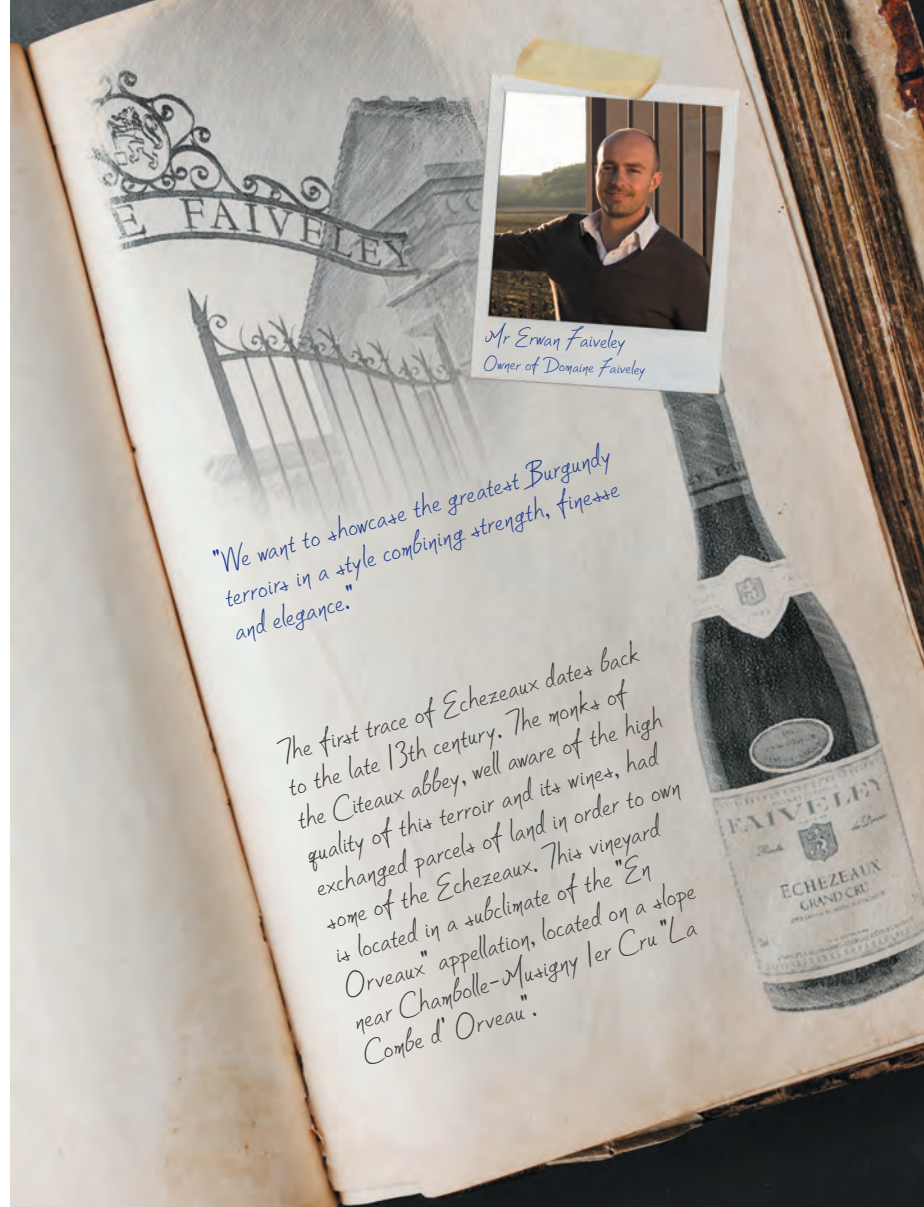 E FAIVELEY
Mr Erwan Faiveley
Owner of Domaine Faiveley
"We want to showcase the greatest Burgundy
terroirs in a style combining strength, finesse
and elegance."
The first trace of Echezeaux dates back
to the late 13th century. The monks of
the Citeaux abbey, well aware of the high
quality of this terroir and its wines, had
exchanged parcels of land in order to own
some of the Echezeaux. This vineyard
is located in a subclimate of the "En
Orveaux" appellation, located on a slope
near Chambolle-Musigny 1er Cru "La
Combe d' Orveau".
FAIVELEY
ECHEZEAUX
GRAND CRU